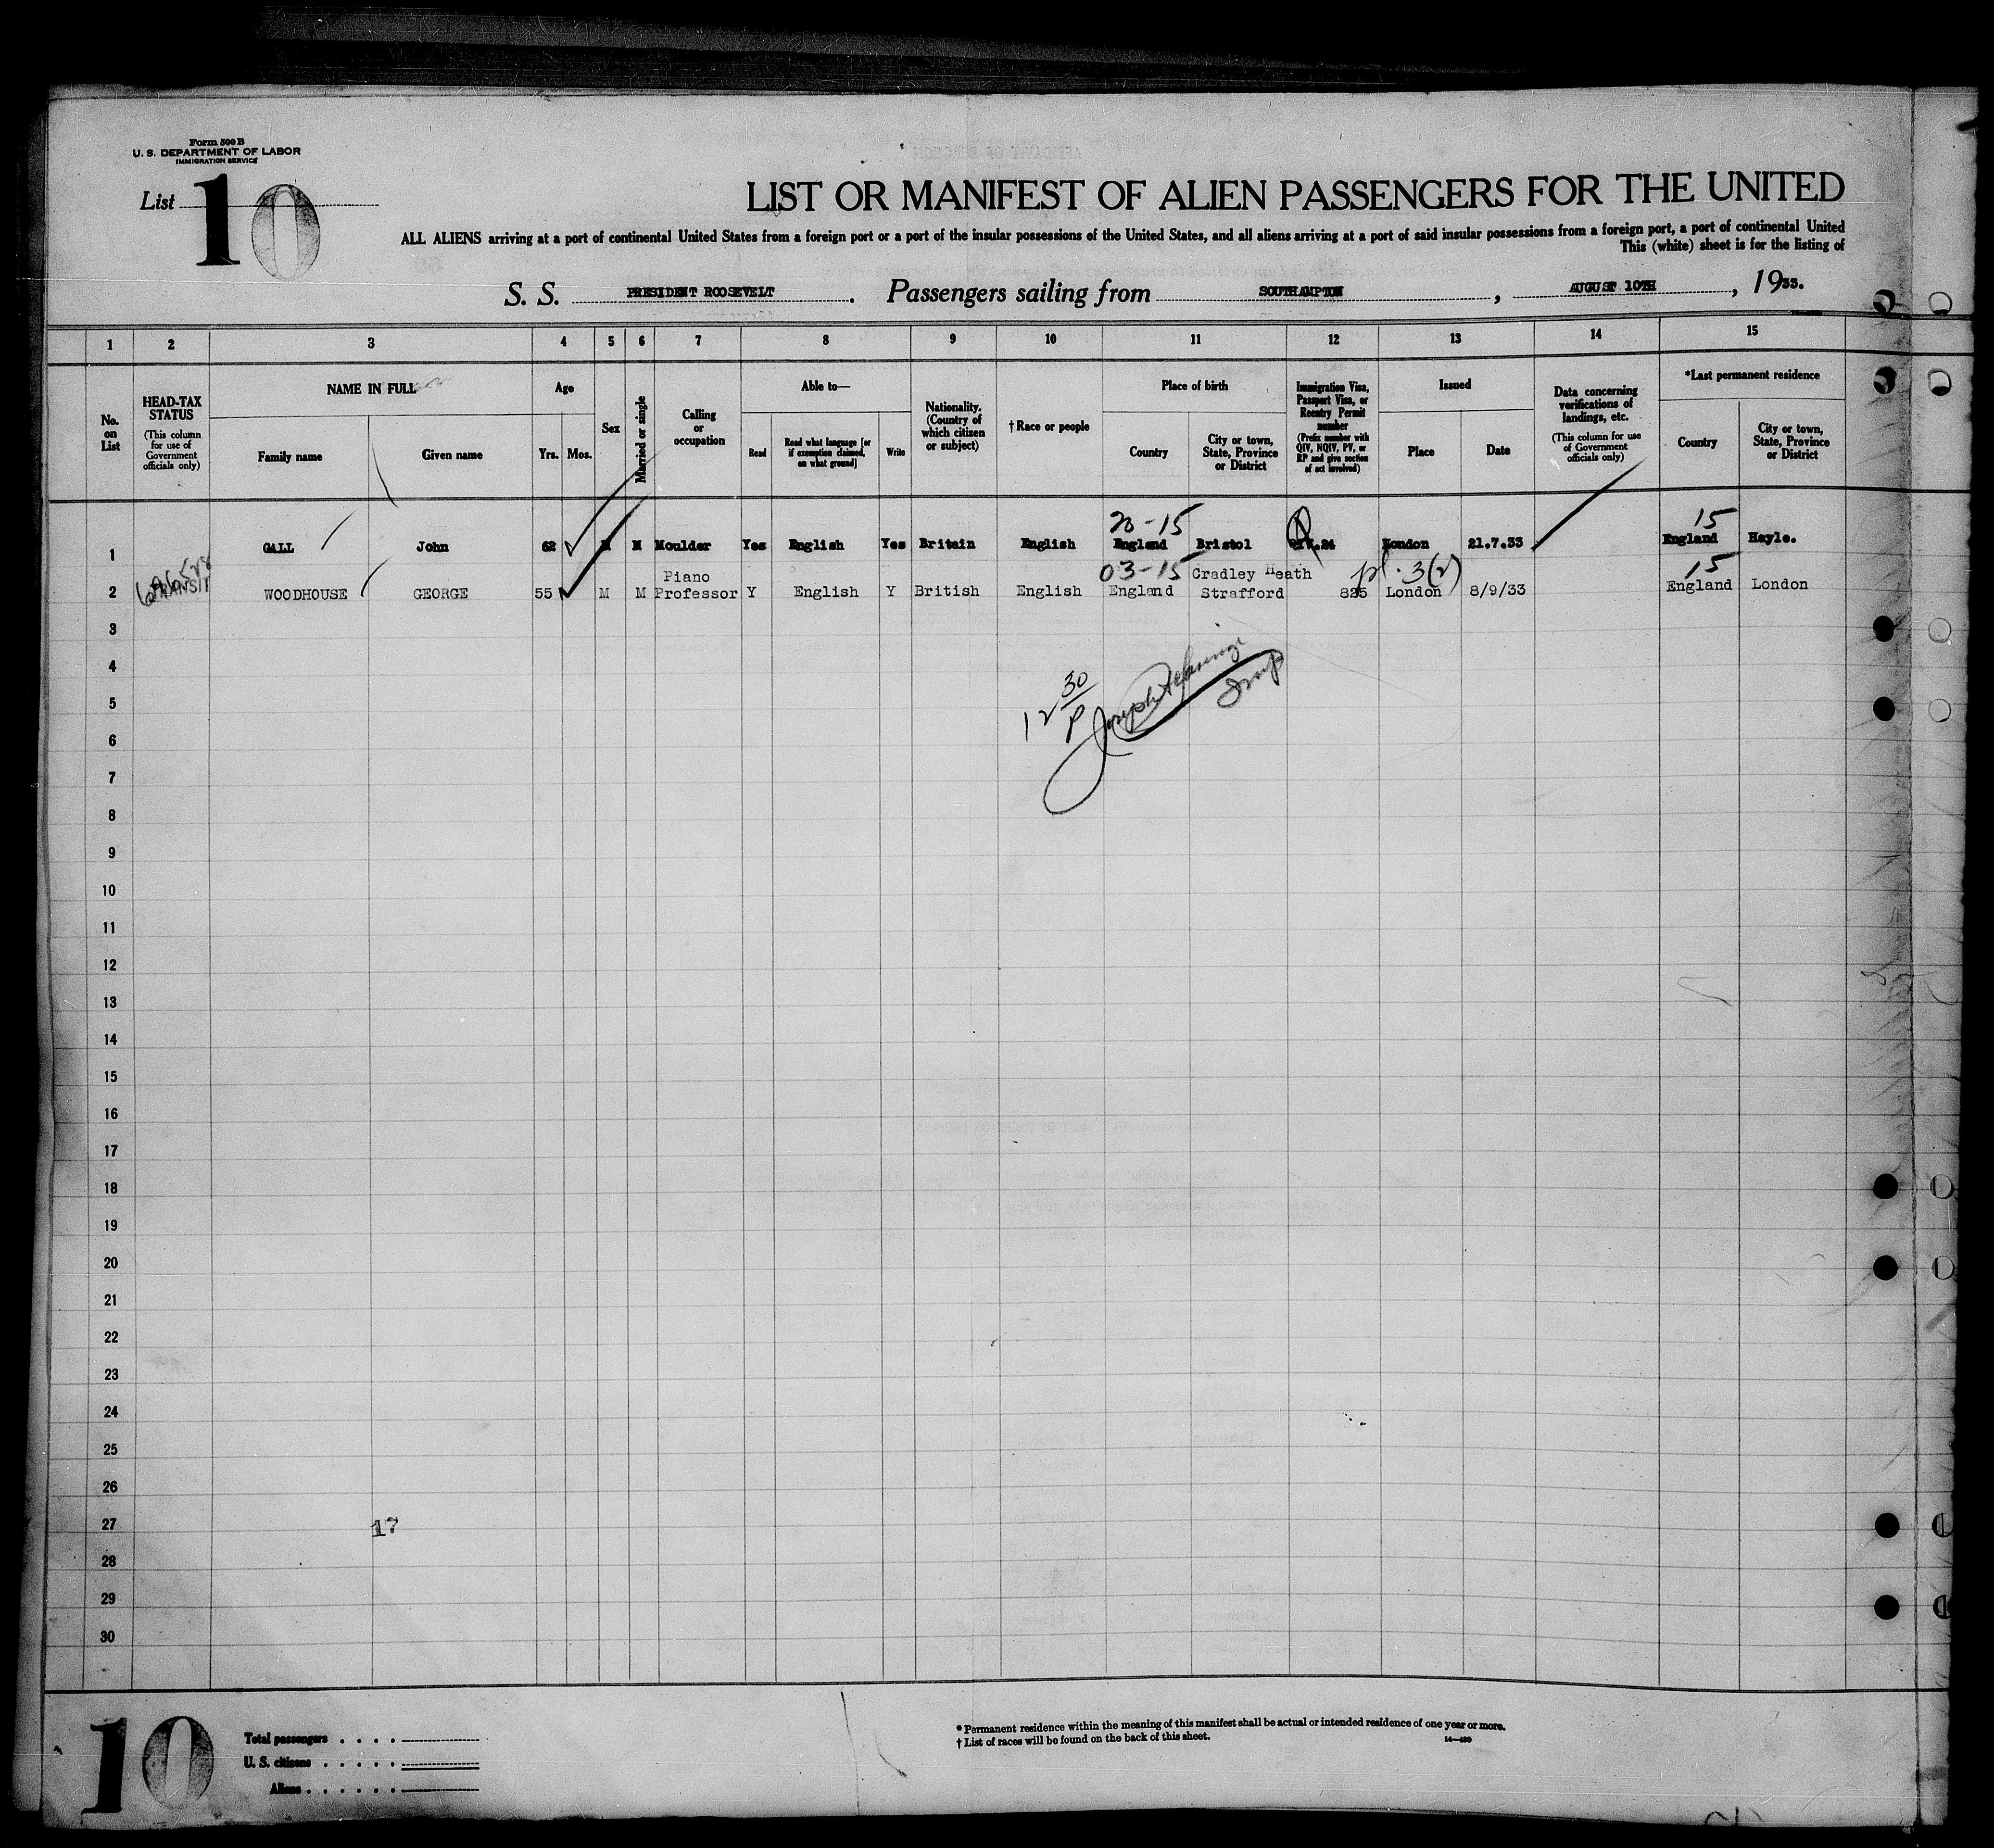 Form 500 B
U. S. DEPARTMENT OF LABOR
IMMIGRATION SERVICE
List 10
LIST OR MANIFEST OF ALIEN PASSENGERS FOR THE UNITED
ALL ALIENS arriving at a port of continental United States from a foreign port or a port of the insular possessions of the United States, and all aliens arriving at a port of said insular possessions from a foreign port, a port of continental United
This (white) sheet is for the listing of
S. S. PRESIDENT ROOSEVELT. Passengers sailing from SOUTHAMPTON, AUGUST 10TH, 1933.
1 2 3 4 5 6 7 8 9 10 11 12 13 14 15
No. on List
HEAD-TAX STATUS
(This column for use of Government officials only)
NAME IN FULL
Family name
Given name
Age
Yrs.
Mos.
Sex
Married or single
Calling or occupation
Able to—
Read
Read what language [or if exemption claimed, on what ground]
Write
Nationality. (Country of which citizen or subject)
† Race or people
Place of birth
Country
City or town, State, Province or District
Immigration Visa, Passport Visa, or Reentry Permit number
(Prefix number with QIV, NQIV, PV, or RP and give section of act involved)
Issued
Place
Date
Data concerning verifications of landings, etc.
(This column for use of Government officials only)
*Last permanent residence
Country
City or town, State, Province or District
20-15
15
1 GALL John 62 M M Moulder Yes English Yes Britain English England Bristol QIV.24 London 21.7.33 England Hayle.
03-15 3(2) 15
Piano Cradley Heath
2 TRANSIT WOODHOUSE GEORGE 55 M M Professor Y English Y British English England Strafford 825 London 8/9/33 England London
3
4
12 30 P
Insp
5
6
7
8
9
10
11
12
13
14
15
16
17
18
19
20
21
22
23
24
25
26
27
17
28
29
30
10
Total passengers . . . .
U. S. citizens . . . . .
Aliens . . . . . .
* Permanent residence within the meaning of this manifest shall be actual or intended residence of one year or more.
† List of races will be found on the back of this sheet.
14—430